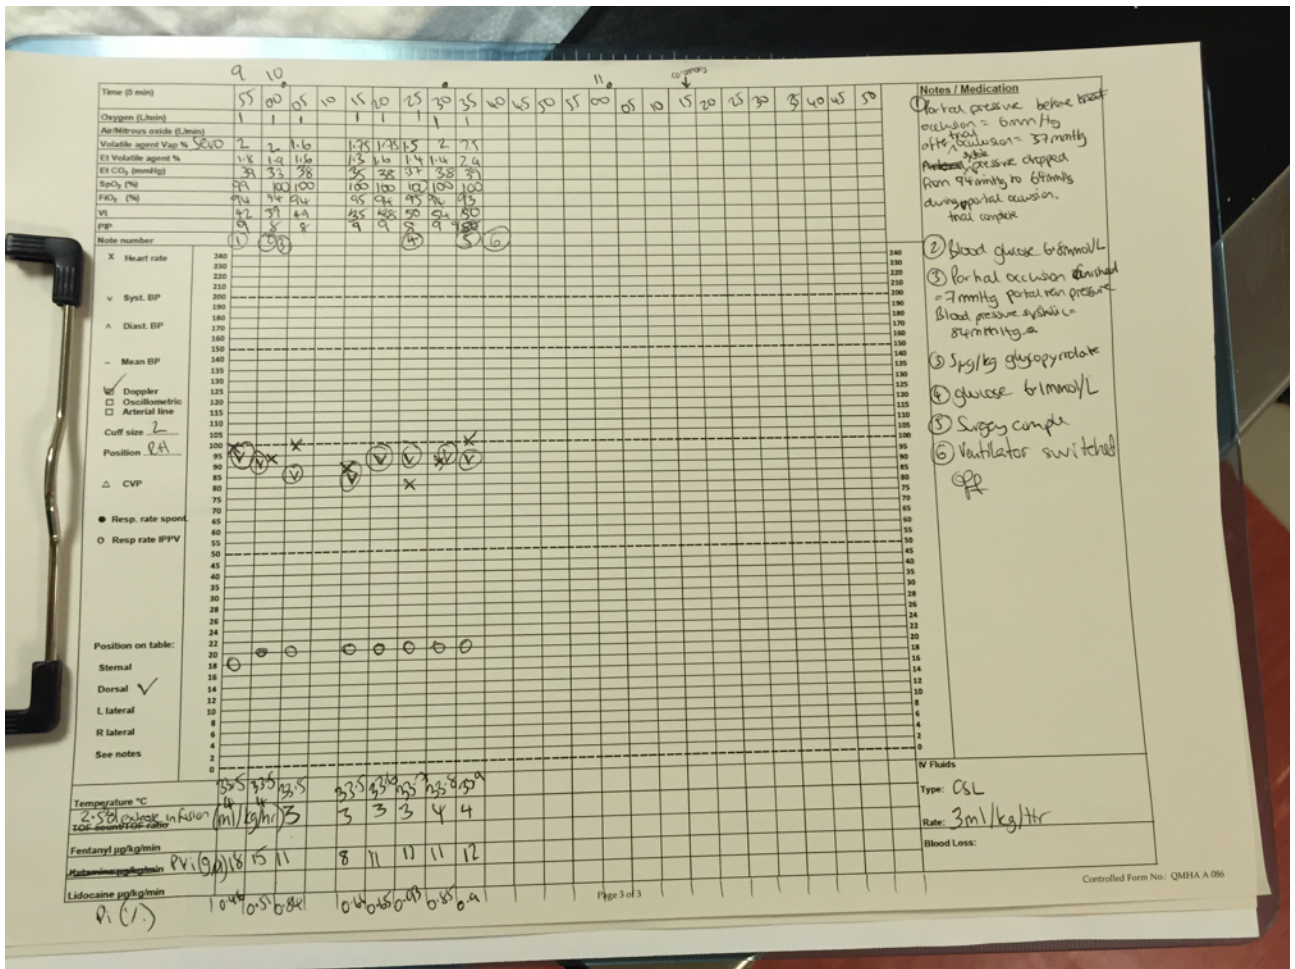 9 10 11
Time (5 min) 55 00 05 10 15 20 25 30 35 40 45 50 55 00 05 10 15 20 25 30 35 40 45 50
Oxygen (L/min) 1 1 1 1 1 1 1 1
Air/Nitrous oxide (L/min)
Volatile agent Vap % Sevo 2 2 1.6 1.75 1.75 1.5 2 2.5
Et Volatile agent % 1.8 1.9 1.6 1.3 1.6 1.4 1.4 2.9
Et CO₂ (mmHg) 39 33 38 35 38 37 38 39
SpO₂ (%) 99 100 100 100 100 100 100 100
FiO₂ (%) 94 94 94 95 94 95 94 93
Vt 42 39 49 50 54 50
PIP 9 8 8 9 9 8 9
Note number 1 3 4 5 6
X Heart rate
v Syst. BP
^ Diast. BP
– Mean BP
Doppler
Oscillometric
Arterial line
Cuff size 2
Position RH
△ CVP
● Resp. rate spont.
O Resp rate IPPV
Position on table:
Sternal
Dorsal ✓
L lateral
R lateral
See notes
240
230
220
210
200
190
180
170
160
150
145
140
135
130
125
120
115
110
105
100
95
90
85
80
75
70
65
60
55
50
45
40
35
30
26
24
22
20
18
16
14
12
10
8
6
4
2
0
Temperature °C 33.5 33.5 33.5 33.5 33.6 33.8
2.5% dextrose infusion (ml/kg/hr) 4 4 3 3 3 3 4 4
TOF count/TOF ratio
Fentanyl µg/kg/min
Ketamine µg/kg/min PVi (%) 18 15 11 8 11 11 12
Lidocaine µg/kg/min
Pi (%) 0.51 0.84 0.65 0.85 0.9
Page 3 of 3
Notes / Medication
① Portal pressure before
occlusion = 6mmHg
after trial occlusion = 37mmHg
systolic pressure dropped
from 94mmHg to 64mmHg
during portal occlusion.
trial complete
② Blood glucose 6.8mmol/L
③ Partial occlusion finished
= 7mmHg portal vein pressure
Blood pressure systolic =
84mmHg
③ 5µg/kg glycopyrrolate
④ glucose 6.1mmol/L
⑤ Surgery comple
⑥ Ventilator switched
off
IV Fluids
Type: CSL
Rate: 3ml/kg/Hr
Blood Loss:
Controlled Form No.: QMHA A 086